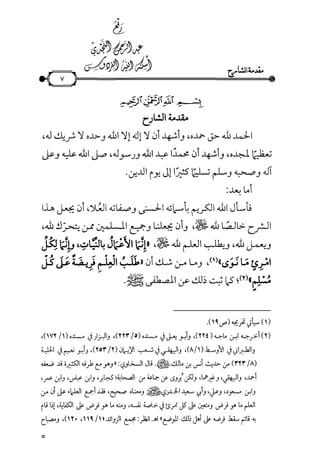 رَفْعُ
عبد الرحمن النجدي
أسكنه الله الفردوس
مقدمة الشارح
٧
بِسْمِ اللَّهِ الرَّحْمَنِ الرَّحِيمِ
مقدمة الشارح
الحمد لله حق حمده، وأشهد أن لا إله إلا الله وحده لا شريك له،
تعظيمًا لمجده، وأشهد أن محمدًا عبد الله ورسوله، صلى الله عليه وعلى
آله وصحبه وسلم تسليمًا كثيرًا إلى يوم الدين.
أما بعد:
فأسأل الله الكريم بأسمائه الحسنى وصفاته العُلا، أن يجعل هذا
الشرح خالصًا لله ﷻ، وأن يجعلنا وجميع المسلمين ممن يتحرّك لله،
ويعمل لله، ويطلب العلم لله ﷻ، «إِنَّمَا الأَعْمَالُ بِالنِّيَّاتِ، وَإِنَّمَا لِكُلِّ
امْرِئٍ مَا نَوَى»(١)، وما من شك أن «طَلَبُ الْعِلْمِ فَرِيضَةٌ عَلَى كُلِّ
مُسْلِمٍ»(٢)؛ كما ثبت ذلك عن المصطفى ﷺ.
(١) سيأتي تخريجه (ص١٩).
(٢) أخرجه ابن ماجه (٢٢٤)، وأبو يعلى في مسنده (٢٢٣/٥)، والبزار في مسنده (١٧٢/١)،
والطبراني في الأوسط (٨/١)، والبيهقي في شعب الإيمان (٢٥٣/٢)، وأبو نعيم في الحلية
(٣٢٣/٨) من حديث أنس بن مالك ﷺ. قال السخاوي: «وهو مع طرقه الكثيرة قد ضعفه
أحمد، والبيهقي، وغيرهما، ولكن يُروى عن جماعة من الصحابة؛ كجابر، وابن عباس، وابن عمر،
وابن مسعود، وعلي، وأبي سعيد الخدري ﷺ ومعناه صحيح، فقد أجمع العلماء على أن من
العلم ما هو فرض ومتعين على كل امرئ في خاصة نفسه، ومنه ما هو فرض على الكفاية، إذا قام
به قائم سقط فرضه على أهل ذلك الموضع» اهـ. انظر: مجمع الزوائد ١١٩/١، ١٢٠)، ومصباح
=